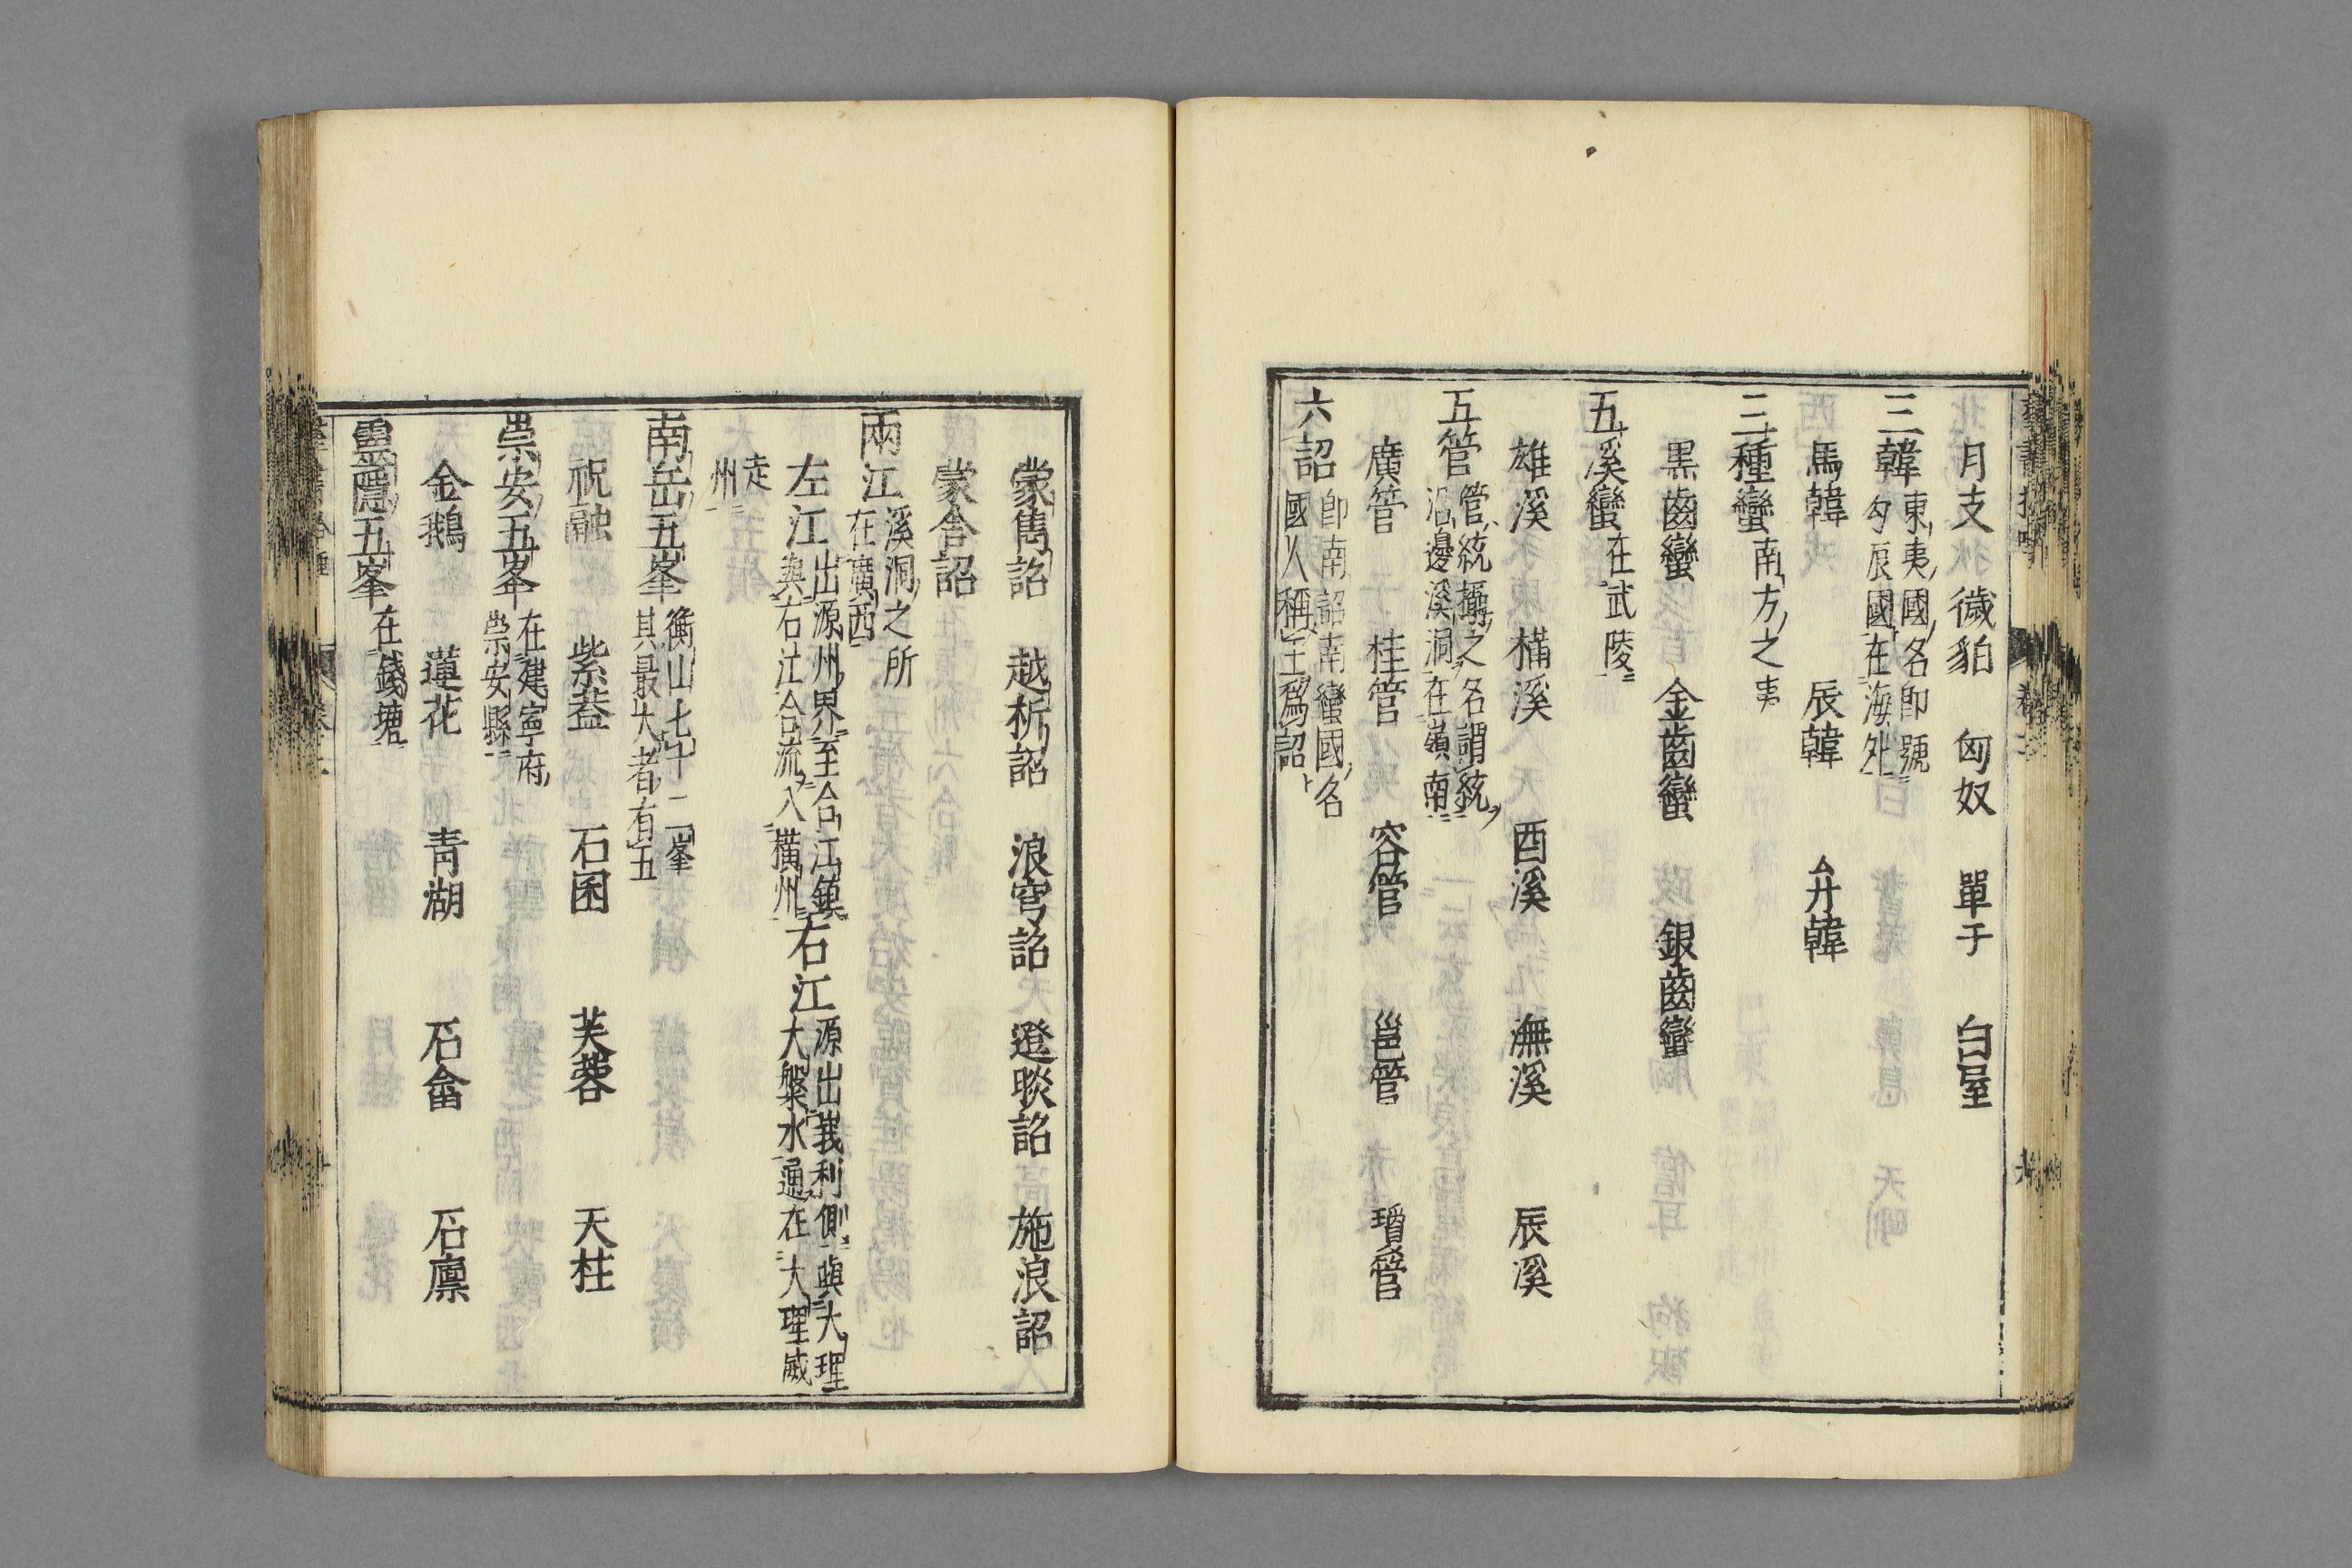 月支 𥡜貊 匈奴 單于 白屋
三韓 東夷國名卽號
勾辰國在海外
馬韓 辰韓 弁韓
三種蠻 南方之夷
黑齒蠻 金齒蠻 銀齒蠻
五溪蠻 在武陵
雄溪 樠溪 酉溪 潕溪 辰溪
五管 管統攝之名謂統
沿邊溪洞在嶺南
廣管 桂管 容管 邕管 瓊管
六詔 卽南詔南蠻國名
國人稱王爲詔
蒙雋詔 越析詔 浪穹詔 邆睒詔 施浪詔
蒙舍詔
兩江 溪洞之所
在廣西
左江 出源州界至合江鎮
與右江合流入橫州
右江 源出峩利側與大理
大槃水通在大理威
走
州
南岳五峯 衡山七十二峯
其最大者有五
祝融 紫葢 石囷 芙蓉 天柱
崇安五峯 在建寧府
崇安縣
金鵝 蓮花 靑湖 石畲 石廪
靈隱五峯 在錢塘